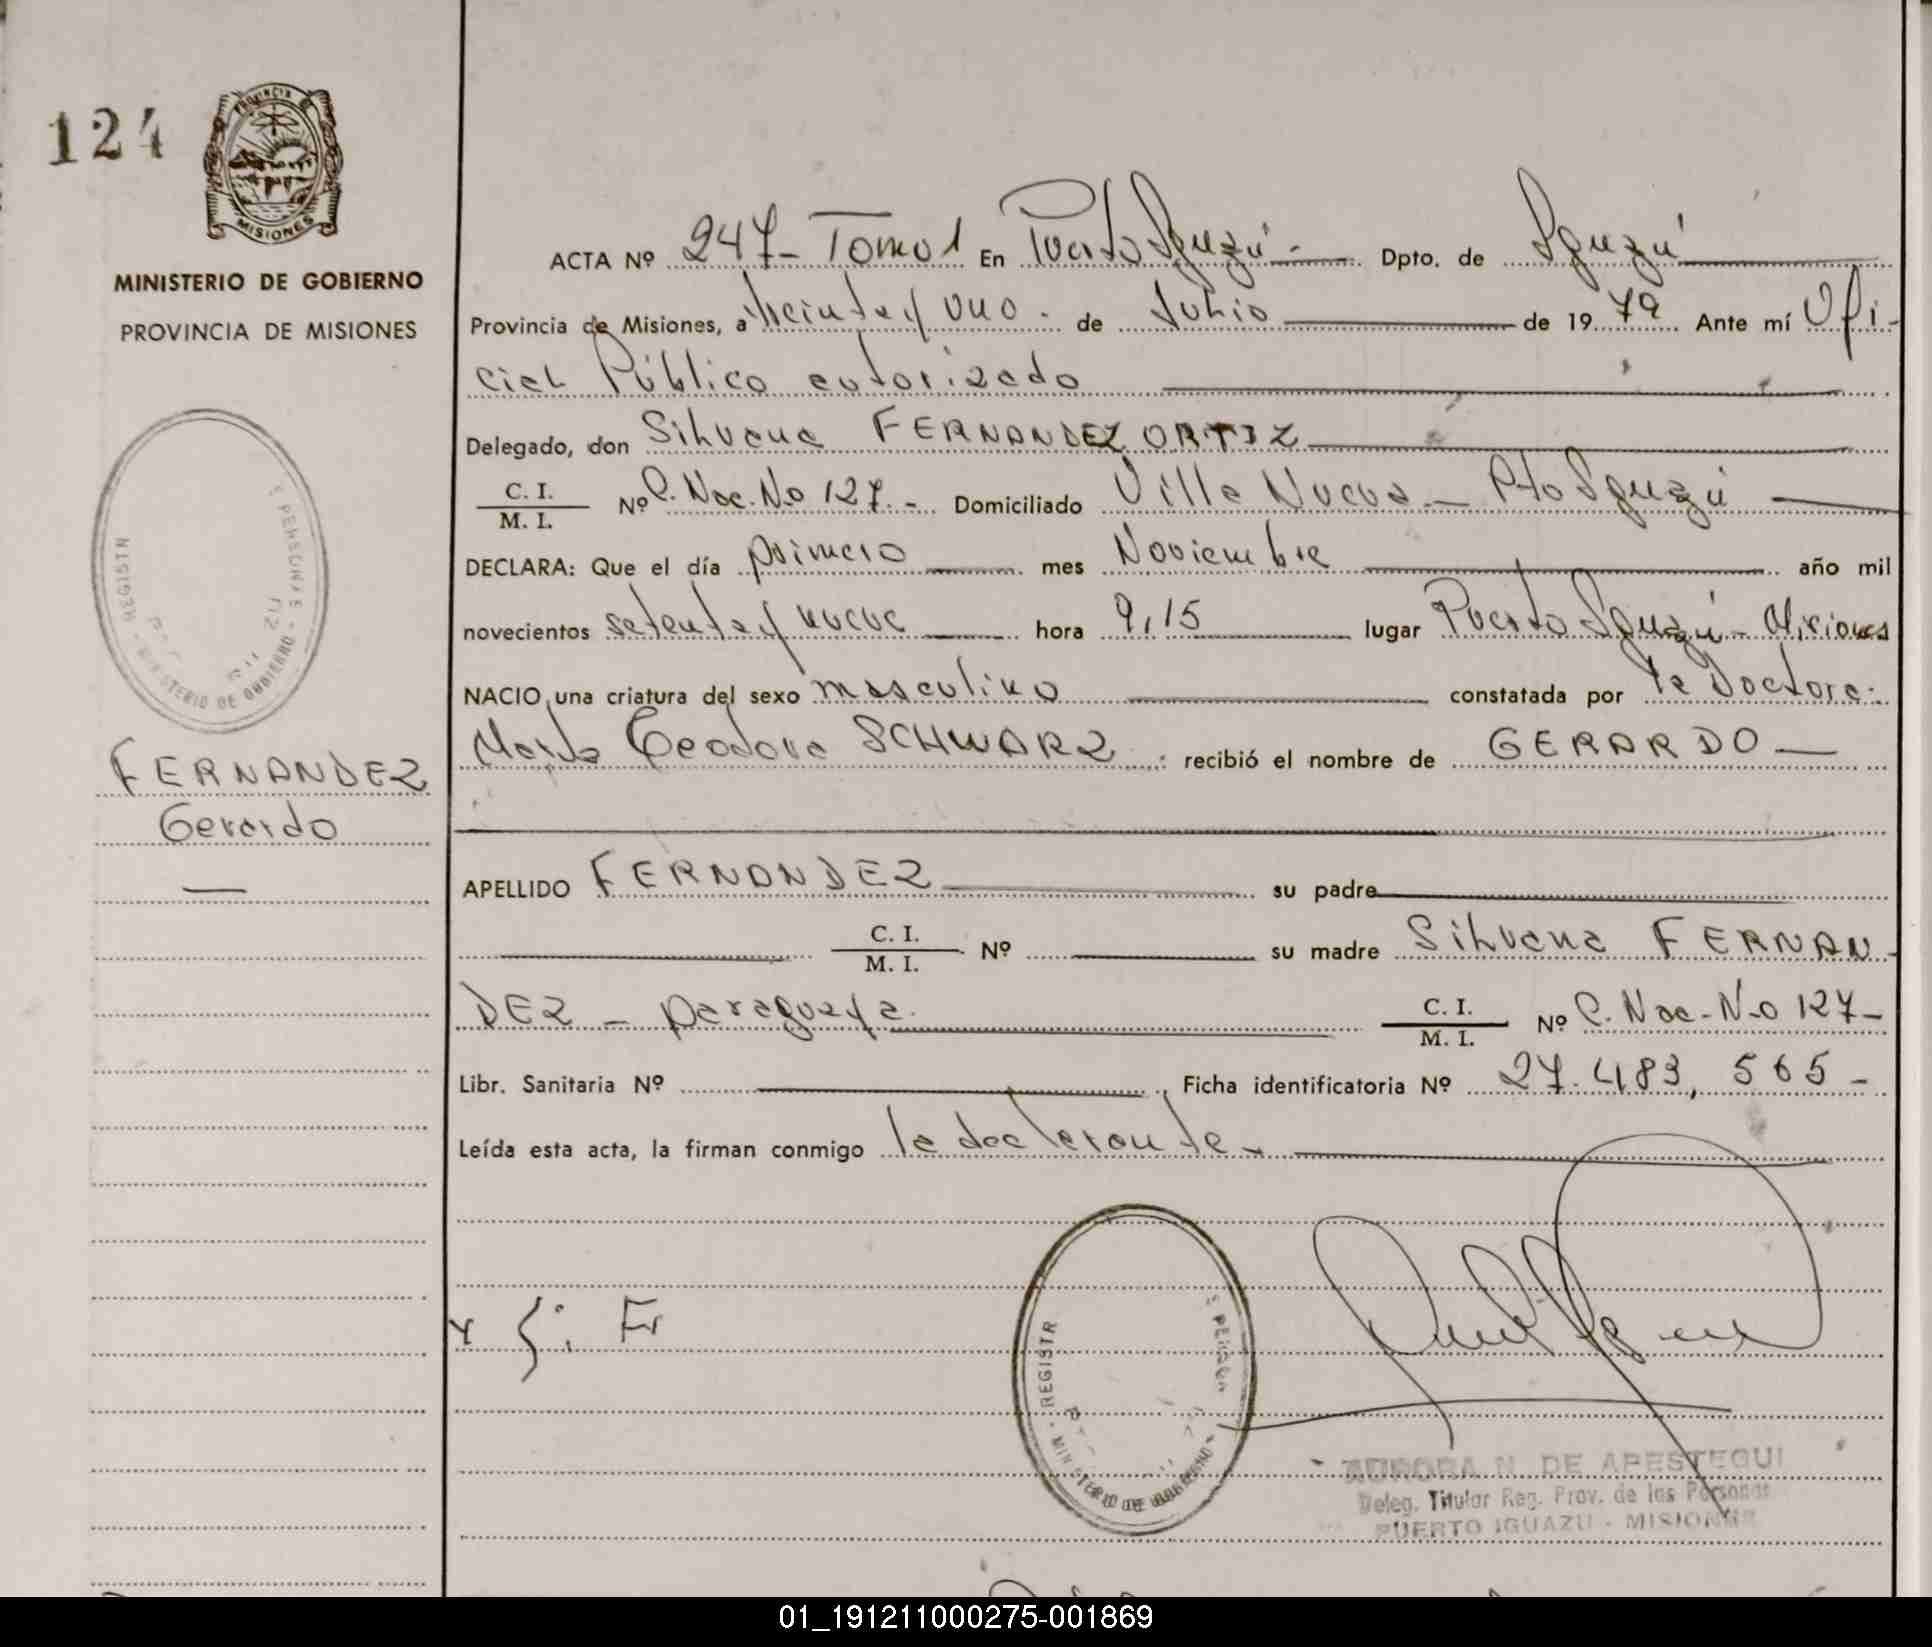 124
PROVINCIA DE
MISIONES
MINISTERIO DE GOBIERNO
PROVINCIA DE MISIONES
ACTA Nº 247- Tomo 1 En Puerto Iguazú - Dpto. de Iguazú
Provincia de Misiones, a treinta y uno. de Julio de 19 79 Ante mí Ofi-
cial Público autorizado
Delegado, don Silvana FERNANDEZ ORTIZ
C. I.
M. I. Nº C. Nac. No 127.- Domiciliado Villa Nueva - Pto Iguazú
DECLARA: Que el día primero mes Noviembre año mil
novecientos setenta y nueve hora 9,15 lugar Puerto Iguazú - Misiones
NACIO una criatura del sexo masculino constatada por la Doctora
Marta Teodora SCHWARZ recibió el nombre de GERARDO
FERNANDEZ
Gerardo
APELLIDO FERNANDEZ su padre
C. I.
M. I. Nº su madre Silvana FERNAN-
DEZ - paraguaya. C. I.
M. I. Nº C. Nac. No 127-
Libr. Sanitaria Nº Ficha identificatoria Nº 27.483,565-
Leída esta acta, la firman conmigo la declarante-
REGISTR
MINISTERIO DE GOBIERNO
AURORA N. DE APESTEGUI
Deleg. Titular Reg. Prov. de las Personas
PUERTO IGUAZU - MISIONES
01_191211000275-001869